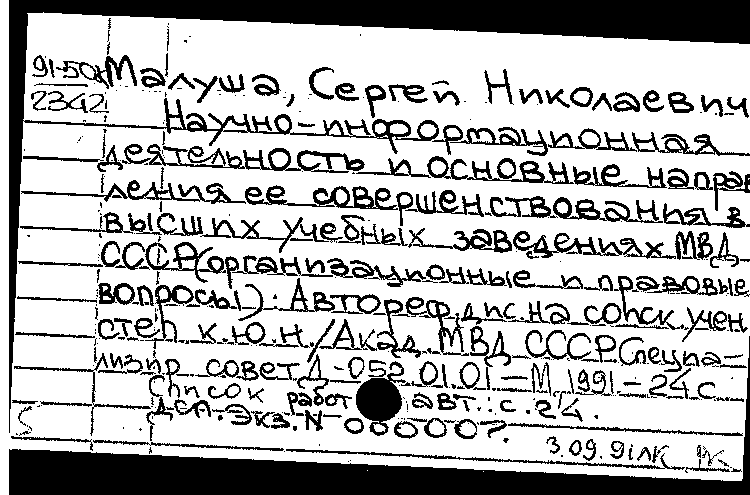 91-50х Малуша, Сергей Николаевич
2342 Научно-информационная
деятельность и основные направ
ления ее совершенствования в
высших учебных заведениях МВД
СССР(организационные и правовые
вопросы): Автореф.дис.на соиск.учен
степ к.ю.н./Акад.МВД СССР.Специа-
лизир совет Д-052.01.01-М,1991-24с
Список работ авт.:с.24.
ДСП.Экз.N 000007.
3.09.91лк